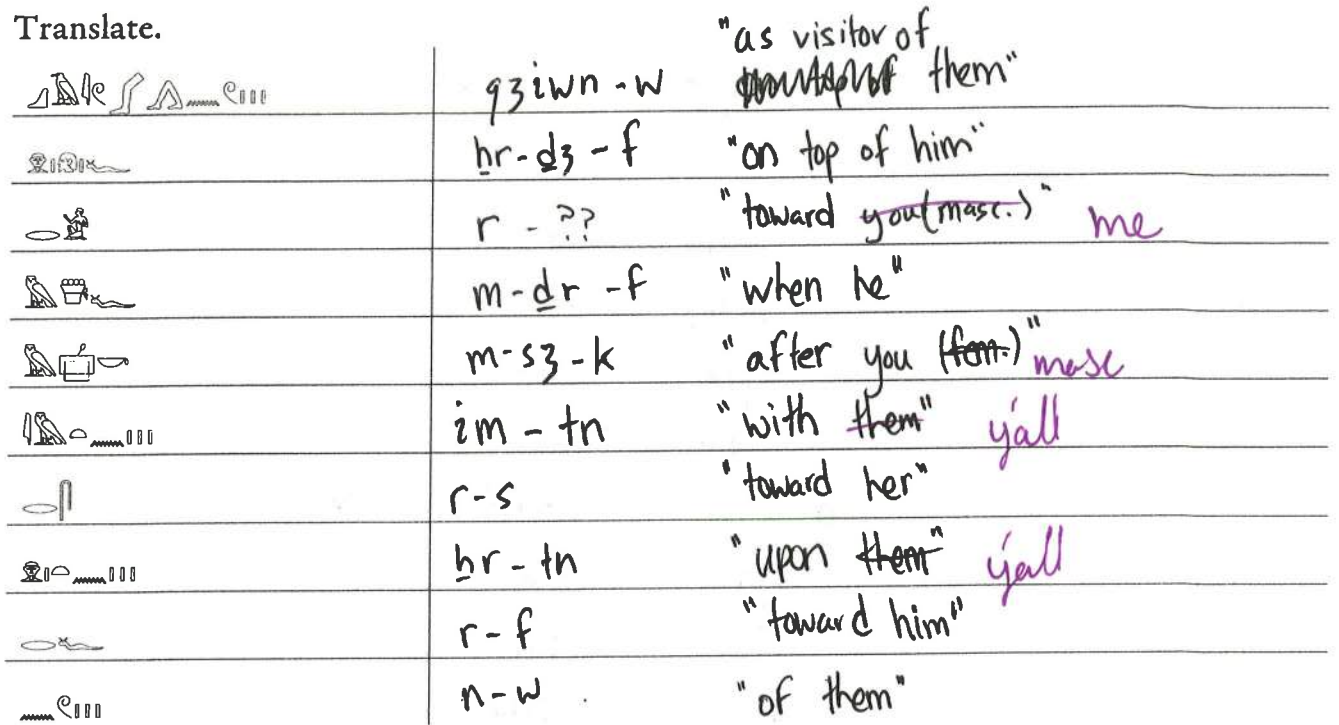 Translate.
"as visitor of
q3iwn - w them"
ẖr-ḏ3 - f "on top of him"
r - ?? "toward you (masc.)" me
m-ḏr -f "when he"
m-s3 -k "after you (fem.)" masc
𓇋𓅓𓏏𓈖𓏥 im - tn "with them" y'all
𓂋𓋴 r-s "toward her"
𓁷𓏤𓏏𓈖𓏥 ẖr - tn "upon them" y'all
𓂋𓆑 r-f "toward him"
𓈖𓏲𓏥 n-w "of them"